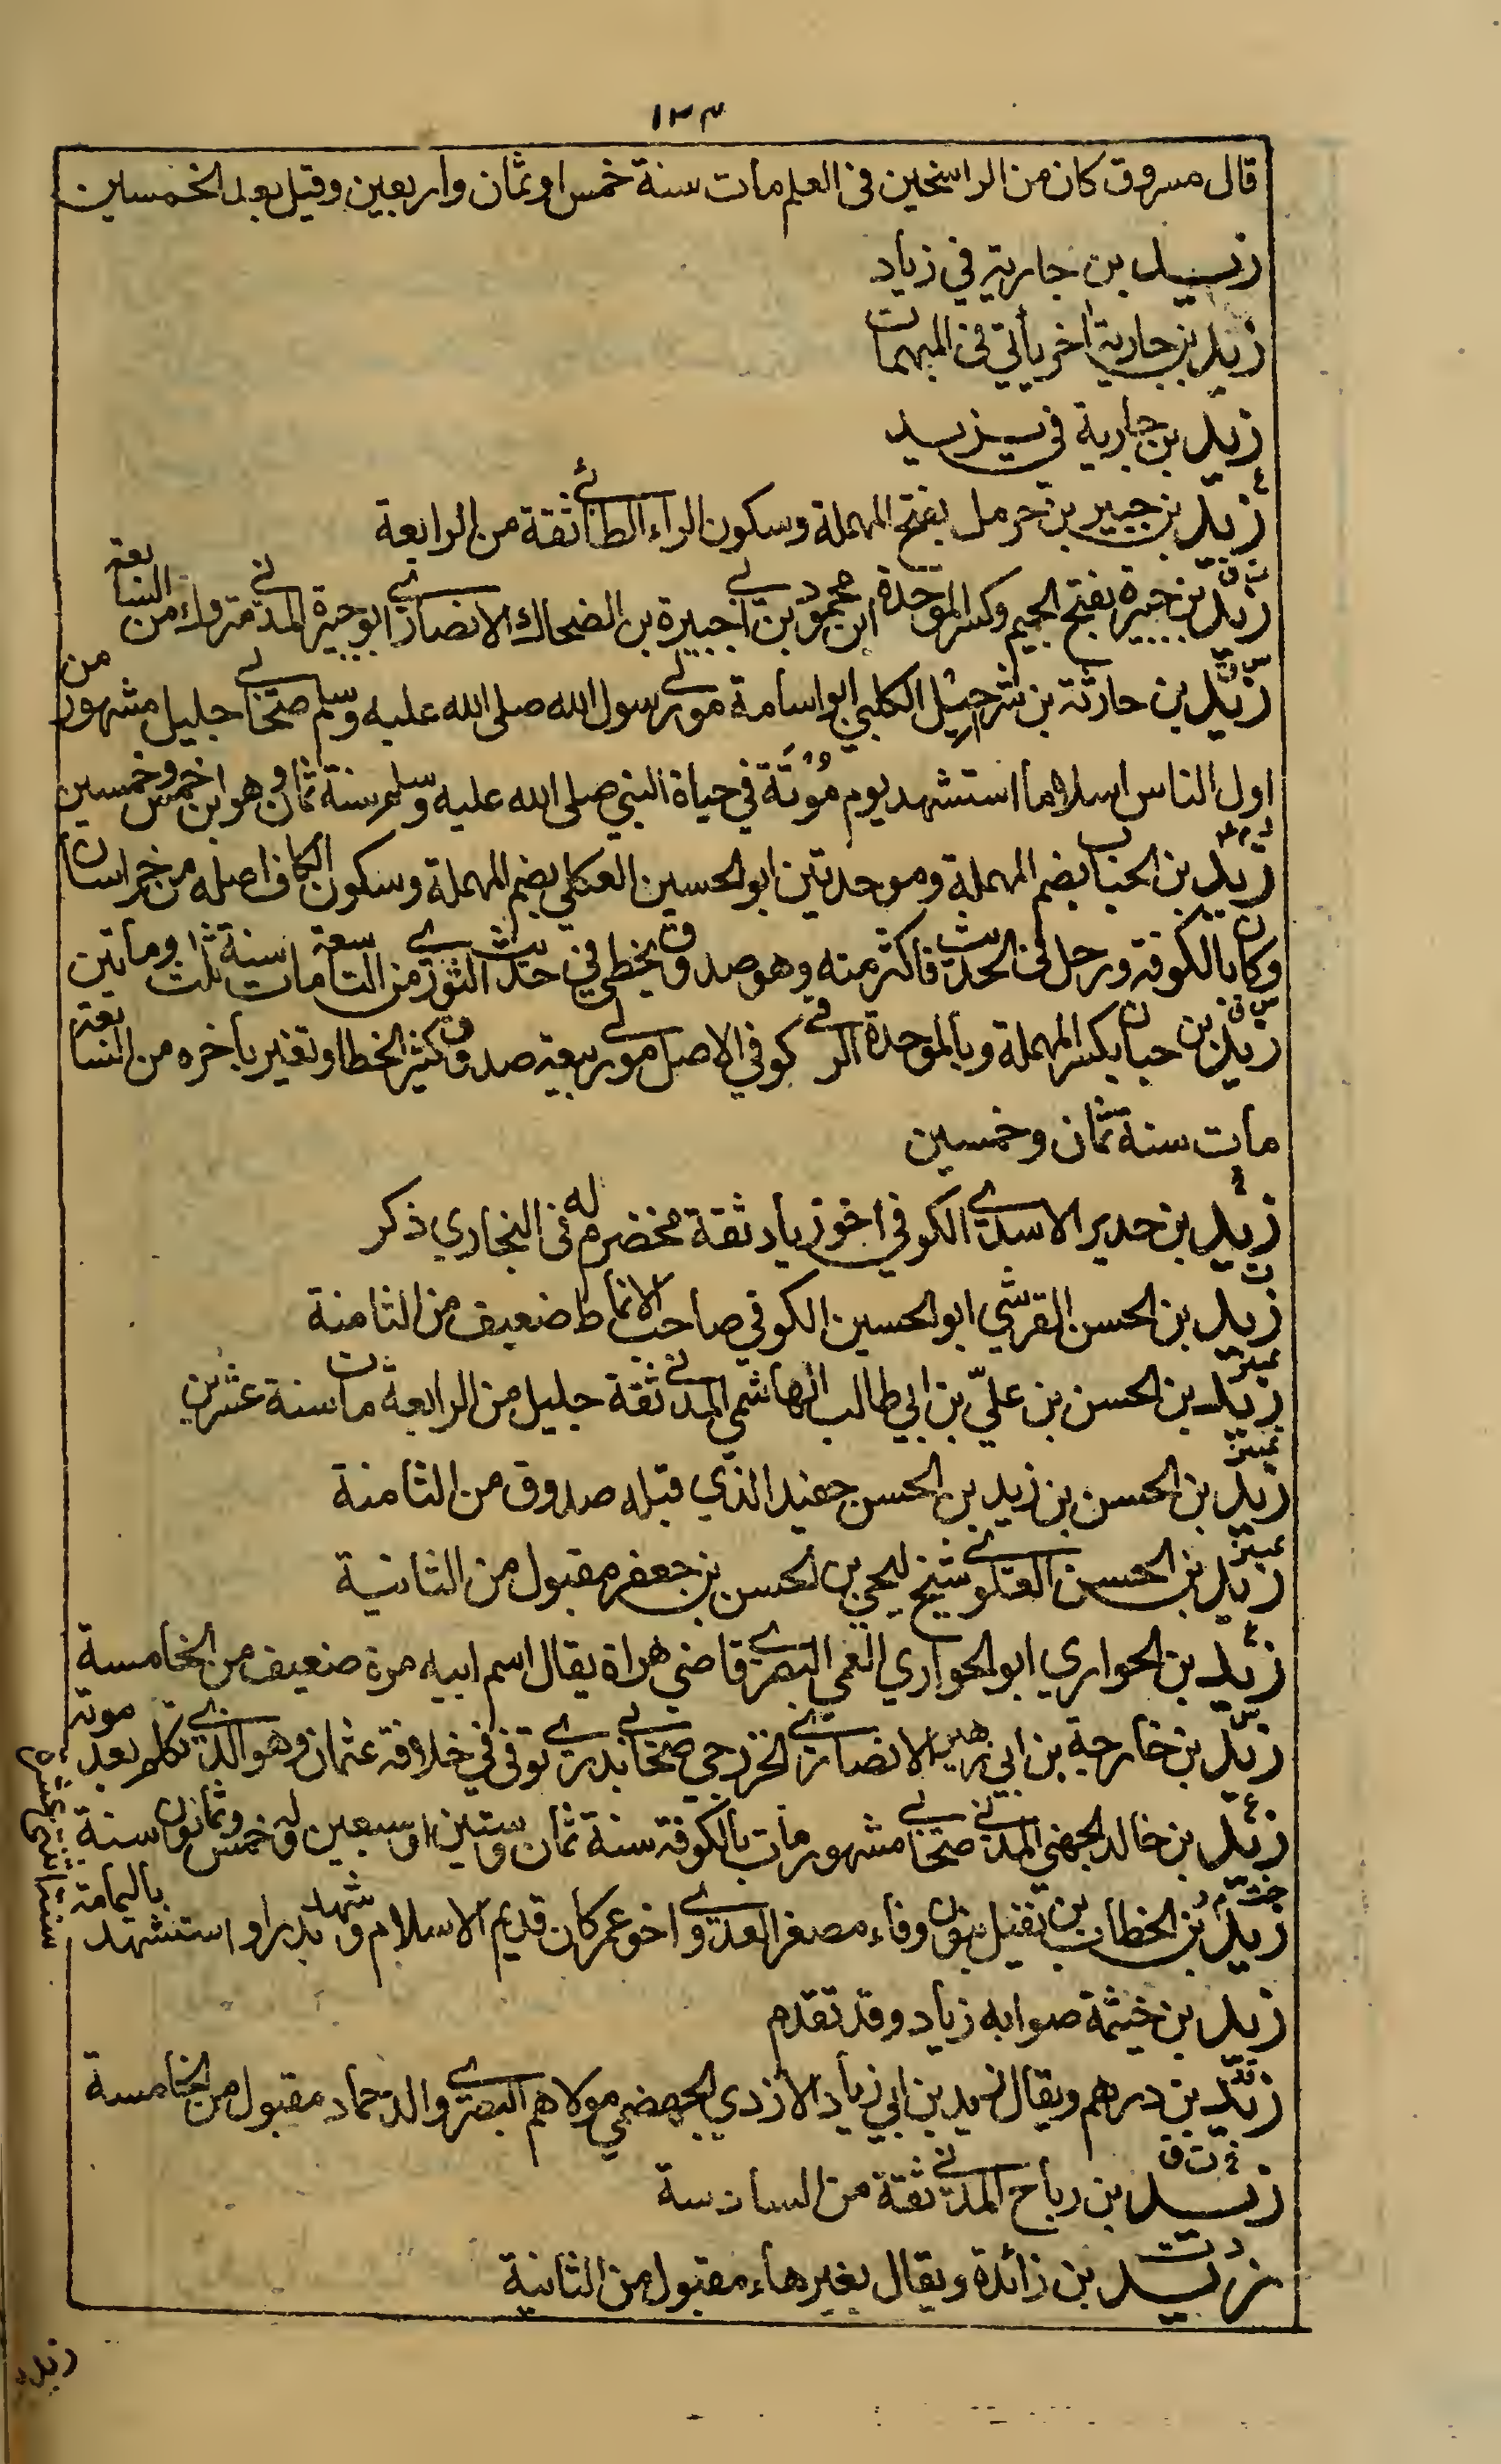 ١٣٤
قال مسروق كان من الراسخين في العلم مات سنة خمس او ثمان واربعين وقيل بعد الخمسين
زيد بن جارية في زياد
زيد بن جارية اخر يأتي في المبهمات
زيد بن جارية في يزيد
ع
زيد بن جبير بن حرمل بفتح المهملة وسكون الراء الطائي ثقة من الرابعة
ت ق
زيد بن جبيرة بفتح الجيم وكسر الموحدة ابن محمود بن ابي جبيرة بن الضحاك الانصاري ابو جبيرة المدني متروك من السابعة
س ق
زيد بن حارثة بن شراحيل الكلبي ابو اسامة مولى رسول الله صلى الله عليه وسلم صحابي جليل مشهور من
اول الناس اسلاما استشهد يوم مؤتة في حياة النبي صلى الله عليه وسلم سنة ثمان وهو ابن خمس وخمسين
زيد بن الحباب بضم المهملة وموحدتين ابو الحسين العكلي بضم المهملة وسكون الكاف اصله من خراسان
وكان بالكوفة ورحل في الحديث فاكثر منه وهو صدوق يخطي في حديث الثوري من التاسعة مات سنة ثلث ومأتين
س ق
زيد بن حبان بكسر المهملة وبالموحدة الرقي كوفي الاصل مولى ربيعة صدوق كثير الخطا وتغير بأخره من السابعة
مات سنة ثمان وخمسين
زيد بن حدير الاسدي الكوفي اخو زياد ثقة مخضرم له في البخاري ذكر
ت
زيد بن الحسن القرشي ابو الحسين الكوفي صاحب الانماط ضعيف من الثامنة
تمييز
زيد بن الحسن بن علي بن ابي طالب الهاشمي المدني ثقة جليل من الرابعة مات سنة عشرين
تمييز
زيد بن الحسن بن زيد بن الحسن حفيد الذي قبله صدوق من الثامنة
تمييز
زيد بن الحسن العلوي شيخ ليحيى بن الحسن بن جعفر مقبول من الثانية
زيد بن الحواري ابو الحواري العمي البصري قاضي هراة يقال اسم ابيه مرة ضعيف من الخامسة
س
زيد بن خارجة بن ابي زهير الانصاري الخزرجي صحابي بدري توفي في خلافة عثمان وهو الذي تكلم بعد موته
ع
زيد بن خالد الجهني المدني صحابي مشهور مات بالكوفة سنة ثمان وستين او سبعين وله خمس وثمانون سنة
زيد بن الخطاب بن نفيل بنون وفاء مصغر العدوي اخو عمر كان قديم الاسلام وشهد بدرا واستشهد باليمامة
سنة اثنتي عشرة
زيد بن خيثمة صوابه زياد وقد تقدم
زيد بن درهم ويقال زيد بن ابي زياد الازدي الجهضمي مولاهم البصري والد حماد مقبول من الخامسة
خ ت ق
زيد بن رباح المدني ثقة من السادسة
د ت
زيد بن زائدة ويقال بغير هاء مقبول من الثانية
زيد